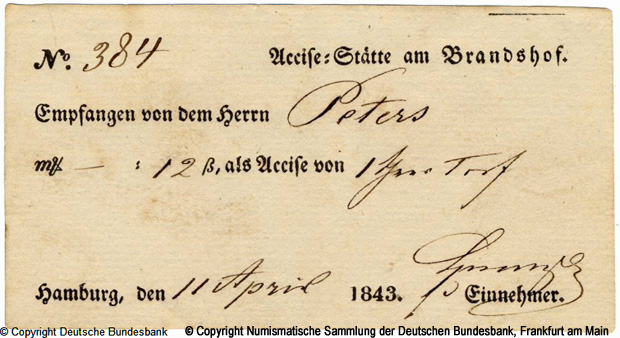 No. 384 Accise-Stätte am Brandshof.
Empfangen von dem Herrn Peters
m₰ — : 12 ß, als Accise von 1 Torf
Hamburg, den 11 April 1843. Einnehmer.
© Copyright Deutsche Bundesbank © Copyright Numismatische Sammlung der Deutschen Bundesbank, Frankfurt am Main